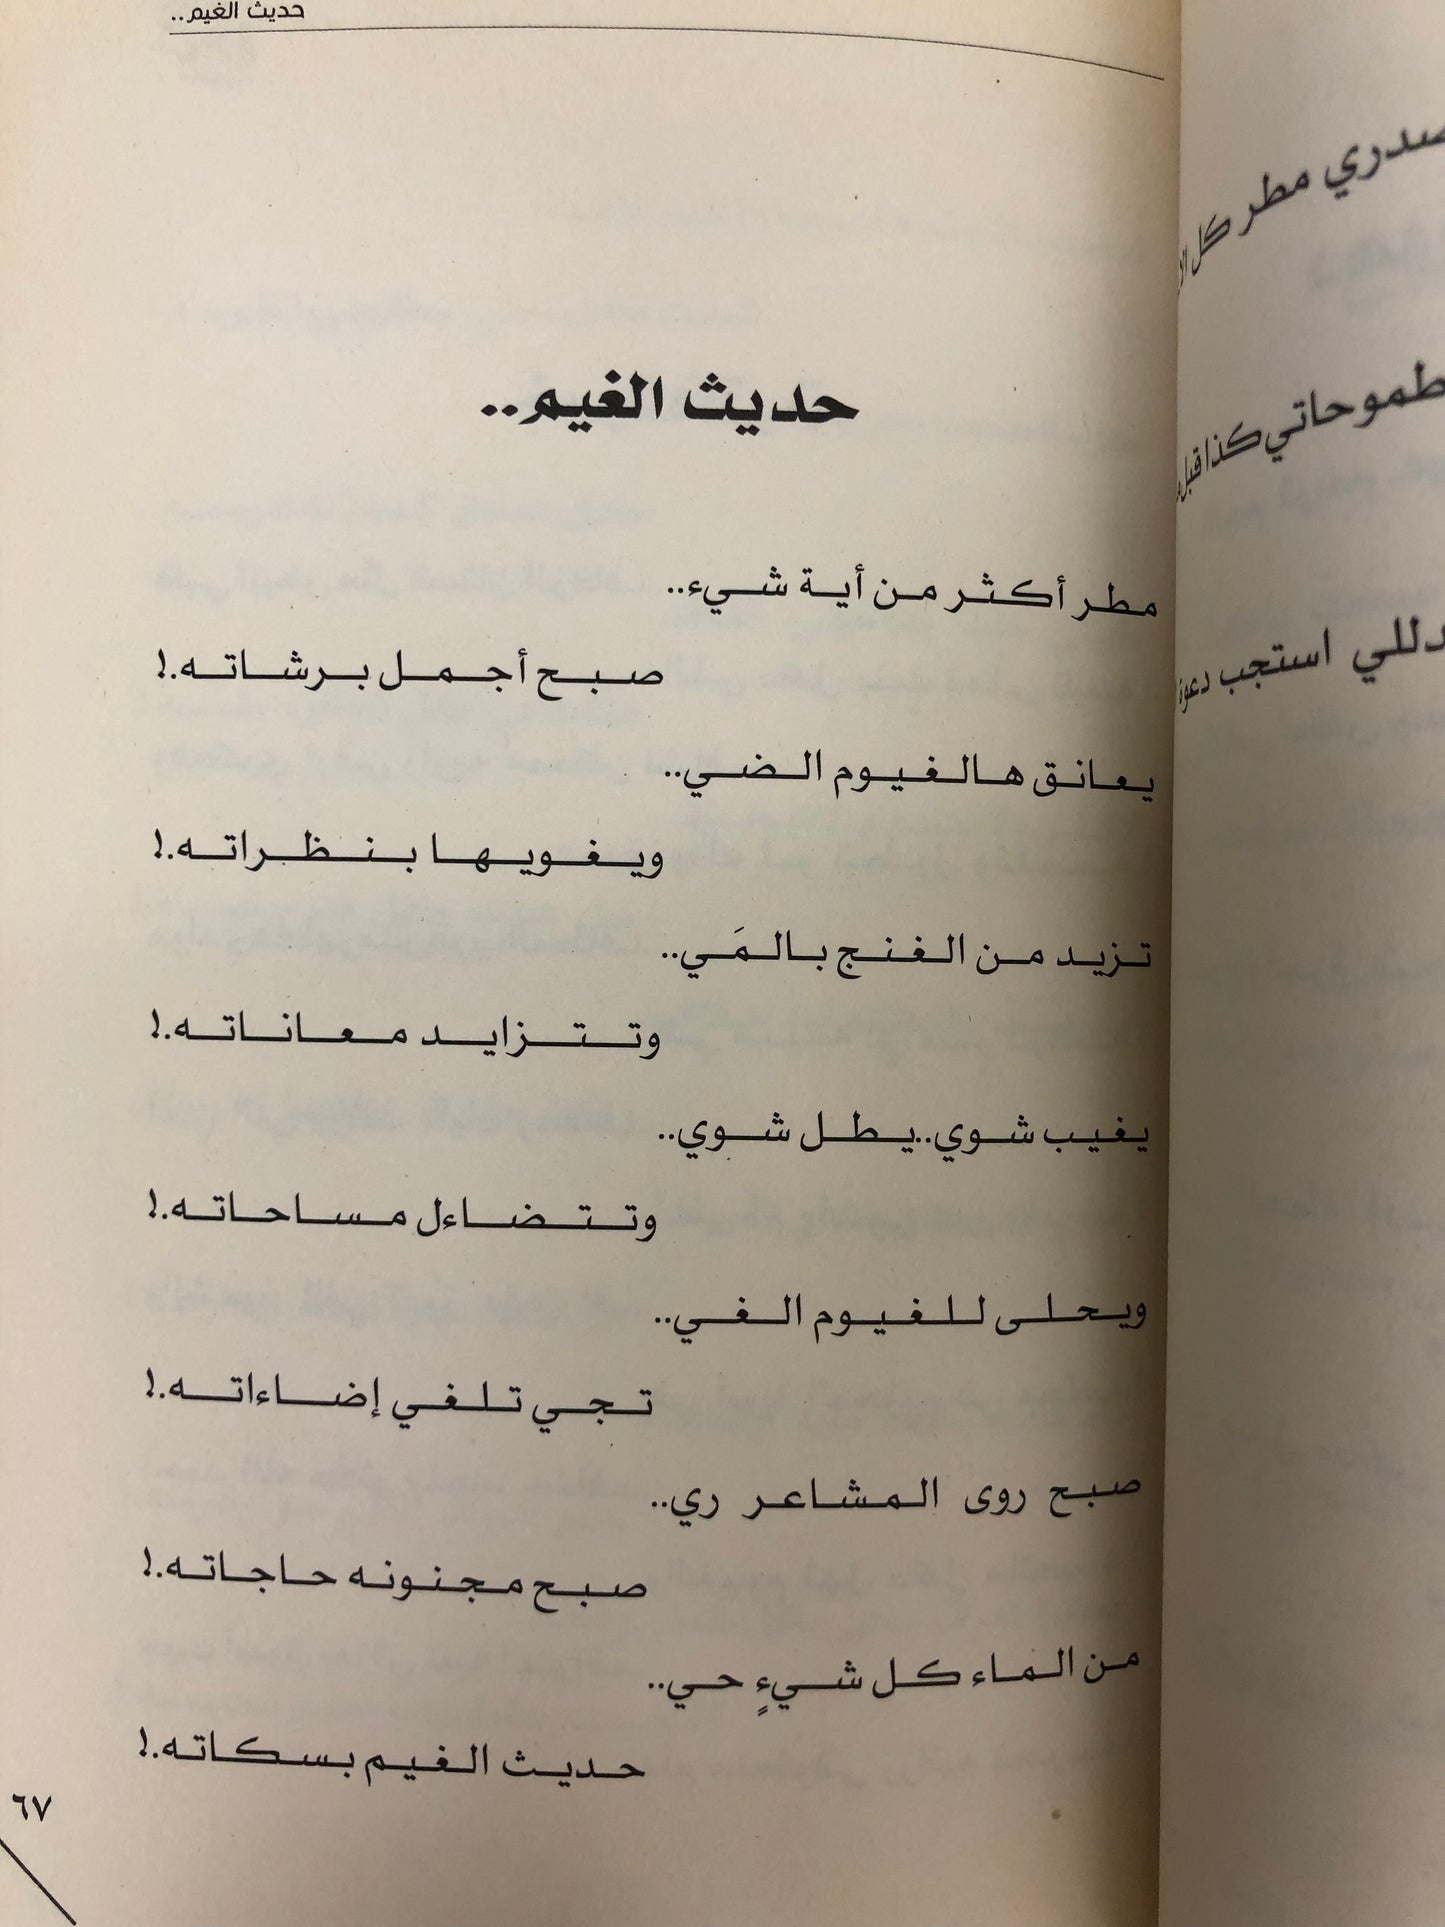 حديث الغيم..
حديث الغيم..
مطر أكثر من أية شيء..
صبح أجمل برشاته.!
يعانق هالغيوم الضي..
ويغويها بنظراته.!
تزيد من الغنج بالمَي..
وتتزايد معاناته.!
يغيب شوي..يطل شوي..
وتتضاءل مساحاته.!
ويحلى للغيوم الغي..
تجي تلغي إضاءاته.!
صبح روى المشاعر ري..
صبح مجنونه حاجاته.!
من الماء كل شيءٍ حي..
حديث الغيم بسكاته.!
٦٧
صدري مطر كل
طموحاتي كذا قبل
دللي استجب دعوة